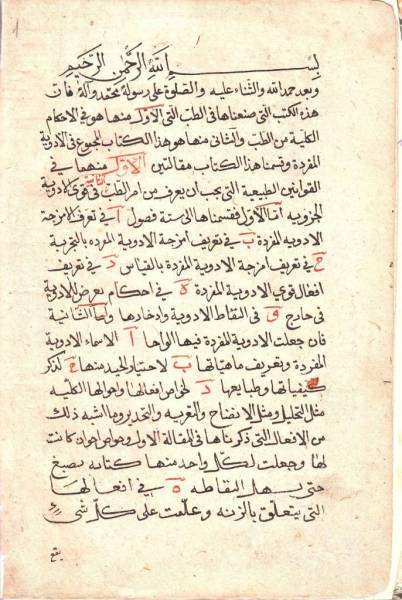 بسم الله الرحمن الرحيم
وبعد حمد الله والثناء عليه والصلوة على رسوله محمد وآله فان
هذه الكتب التى صنعناها فى الطب التى الاول منها هو فى الاحكام
الكلية من الطب والثانى منها هو هذا الكتاب المجموع فى الادوية
المفردة وقسمنا هذا الكتاب مقالتين الاول منهما فى
القوانين الطبيعية التى يجب ان يعرف من امر الطب والثانية فى قوى الادوية
الجزويه اما الاول فقسمناها الى ستة فصول آ فى تعرف امزجة
الادويه المفردة ب فى تعريف امزجة الادوية المفرده بالتجربة
ج فى تعريف امزجة الادوية المفردة بالقياس د فى تعريف
افعال قوى الادوية المفردة ه فى احكام يعرض للادوية
فى خارج و فى التقاط الادوية وادخارها واما الثانية
فان جعلت الادوية المفردة فيها الواحا آ الاسماء الادوية
المفردة وتعريف ماهياتها ب لاختيار الجيد منها ج لذكر
كيفياتها وطبايعها د لخواص افعالها واحوالها الكليه
مثل التحليل ومثل الانضاج والتغريه والتخدير وما اشبه ذلك
من الافعال التى ذكرناها فى المقالة الاولى وخواص اخر ان كانت
لها وجعلت لكل واحد منها كتابه بصبغ
حتى يسهل التقاطه ه فى افعالها
التى يتعلق بالزنه وعلمت على كل شى
يقع